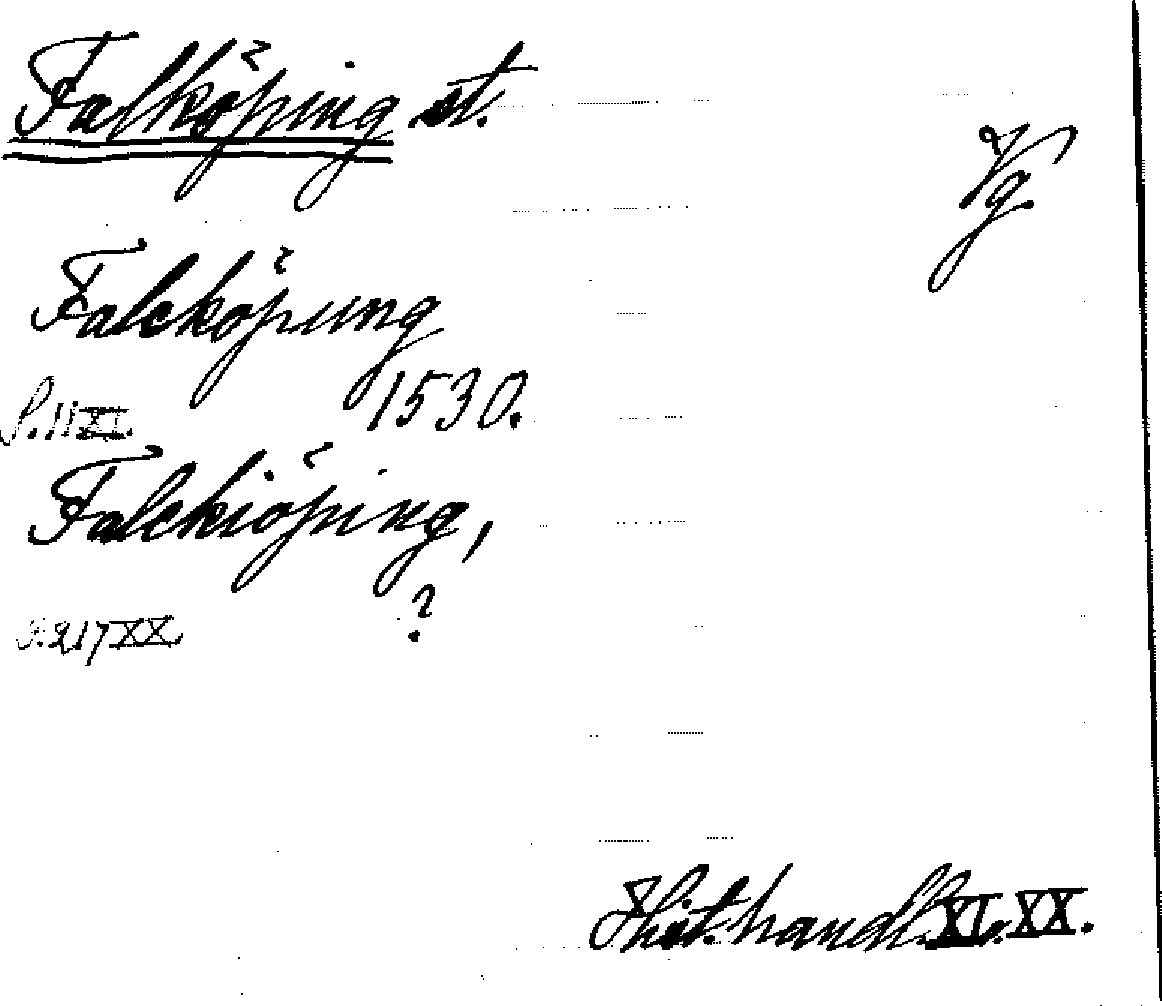 Falköping st.
Vg.
Falcköping
1530.
S. 11 XI.
Falckiöping,
?
S. 217 XX.
Hist. handl. XI. XX.